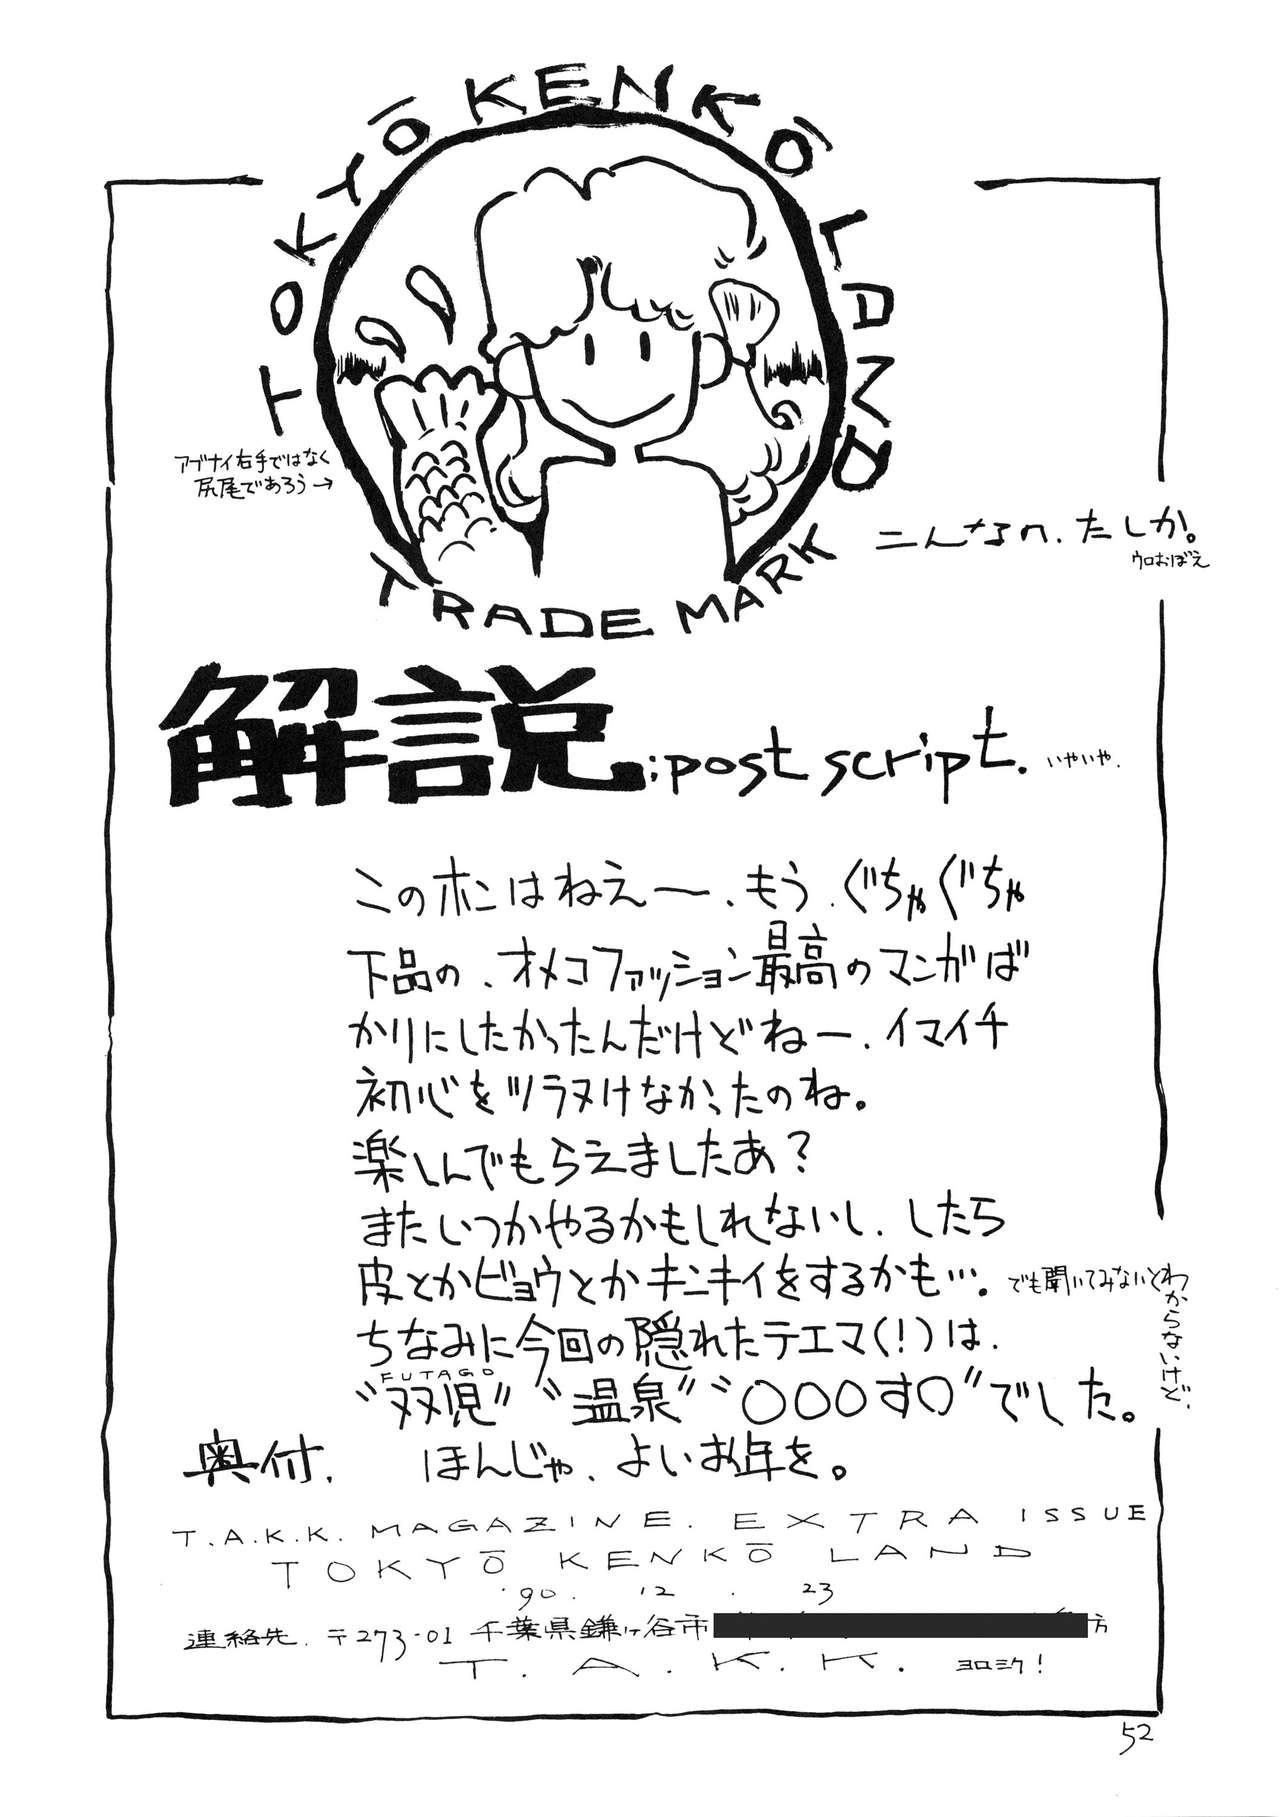 TOKYŌ KENKŌ LAND
アブナイ右手ではなく
尻尾であろう→
TRADE MARK
こんなの、たしか。
ウロおぼえ
解説;post script.
いやいや.
このホンはねえ〜、もう、ぐちゃぐちゃ
下品の、オメコファッション最高のマンガば
かりにしたかったんだけどねー、イマイチ
初心をツラヌけなかったのね。
楽しんでもらえましたあ？
またいつかやるかもしれないし、したら
皮とかビョウとかキンキイをするかも…。
でも聞いてみないとわからないけど、
ちなみに今回の隠れたテエマ(!)は、
FUTAGO
“双児” “温泉” “○○○す○”でした。
奥付.
ほんじゃ、よいお年を。
T.A.K.K. MAGAZINE. EXTRA ISSUE
TOKYŌ KENKŌ LAND
'90. 12. 23
連絡先. 〒273-01 千葉県鎌ヶ谷市
方
T.A.K.K. ヨロシク!
52